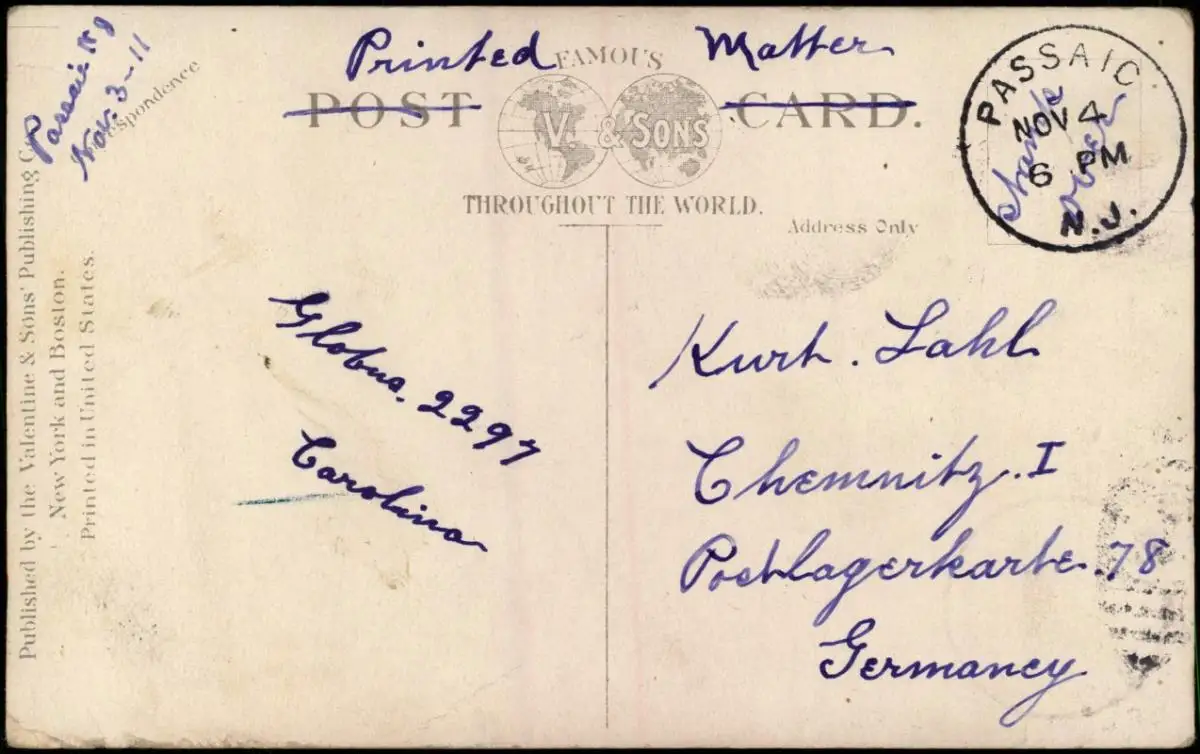 Passaic NJ
Nov. 3-11
Correspondence
Printed Matter
FAMOUS
POST CARD.
V. & SONS
THROUGHOUT THE WORLD.
Address Only
PASSAIC
NOV 4
6 PM
N.J.
stamp
over
Published by the Valentine & Sons' Publishing Co.
New York and Boston.
Printed in United States.
Globus. 2297
Carolina
Kurt. Lahl
Chemnitz. I
Postlagerkarte. 78
Germaney